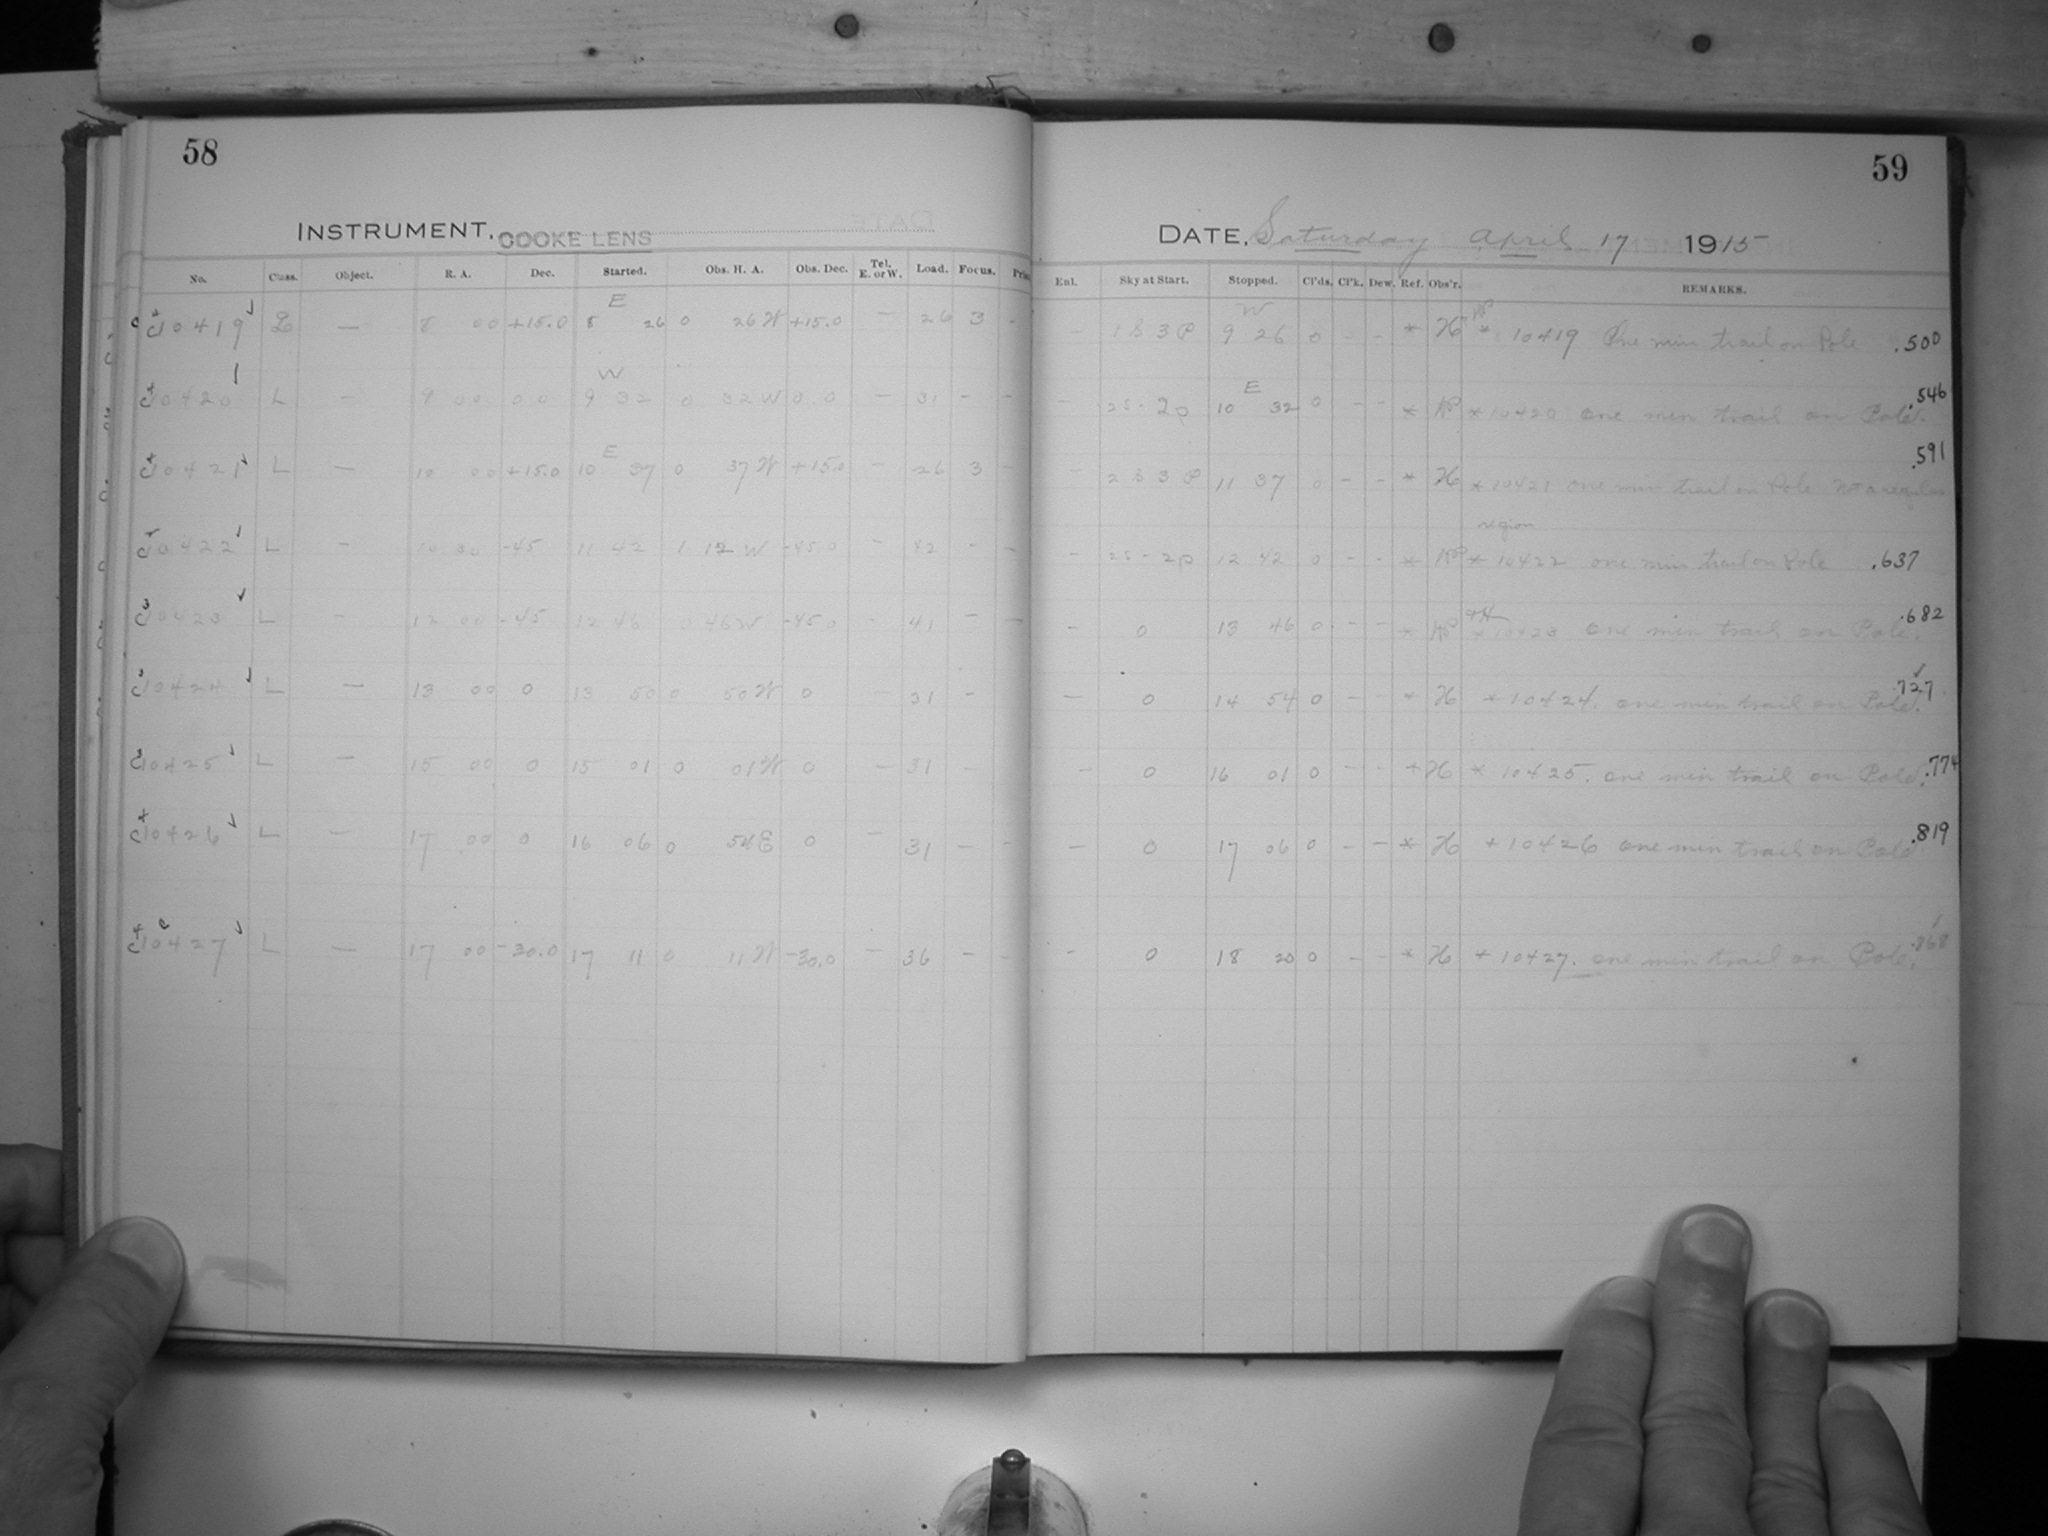 58
INSTRUMENT. COOKE LENS
No. Class. Object. R. A. Dec. Started. Obs. H. A. Obs. Dec. Tel. E. or W. Load. Focus.
E
c10419 L — 8 00 +15.0 8 26 0 26 W +15.0 — 26 3 -
W
c10420 L — 9 00 0 0 9 32 0 32 W 0.0 — 31 - -
E
c10421 L — 10 00 +15.0 10 37 0 37 W +15.0 — 26 3 -
c10422 L — 10 30 -45 11 42 1 12 W -45 0 — 42 - -
c10423 L — 12 00 -45 12 46 0 46 W -45 0 — 41 - -
c10424 L — 13 00 0 13 50 0 50 W 0 — 31 -
c10425 L — 15 00 0 15 01 0 01 W 0 — 31 -
c10426 L — 17 00 0 16 06 0 54 E 0 — 31 - -
c10427 L — 17 00 -30.0 17 11 0 11 W -30.0 — 36 - -
59
DATE, Saturday April 17 1915
Enl. Sky at Start. Stopped. Cl'ds. Cl'k. Dew. Ref. Obs'r. REMARKS.
W
- 1 S 3 P 9 26 0 - - * H * 10419 One min trail on Pole .500
E
- 2S - 2p 10 32 0 - - * * 10420 one min trail on Pole. .546
- 2 S 3 P 11 37 0 - - * H * 10421 one min trail on Pole Not a regular .591
region
- 2S - 2p 12 42 0 - - * * 10422 one min trail on Pole .637
- 0 13 46 0 - - * * 10423 one min trail on Pole. .682
- 0 14 54 0 - - * H * 10424. one min trail on Pole. .727
- 0 16 01 0 - - * H * 10425. one min trail on Pole. .774
- 0 17 06 0 - - * H * 10426 one min trail on Pole .819
- 0 18 20 0 - - * H * 10427. one min trail on Pole. .868